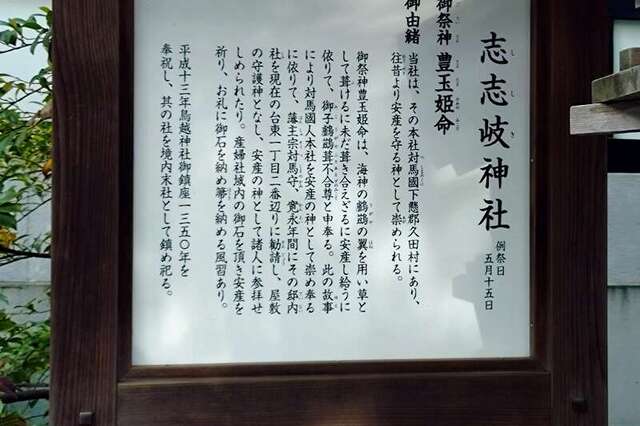 志志岐神社
しじき
例祭日
五月十五日
御祭神 豊玉姫命
御由緒
当社は、その本社対馬國下懸郡久田村にあり、
往昔より安産を守る神として崇められる。
御祭神豊玉姫命は、海神の鶴鵡の翼を用い草と
して葺けるに未だ葺き合えざるに安産し給うに
依りて、御子鶴鵡葺不合尊と申奉る。此の故事
により対馬國人本社を安産の神として崇め奉る
に依りて、藩主宗対馬守、寛永年間にその邸内
社を現在の台東一丁目二番辺りに勧請し、屋敷
の守護神となし、安産の神として諸人に参拝せ
しめられたり。産婦社域内の御石を頂き安産を
祈り、お礼に御石を納め箒を納める風習あり。
平成十三年鳥越神社御鎮座一三五〇年を
奉祝し、其の社を境内末社として鎮め祀る。